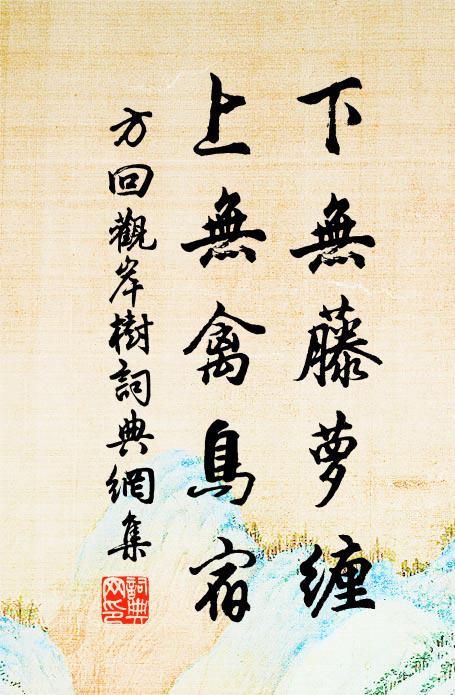 下無藤萝纏
上無禽鳥宿
方回觀岸樹詞典網集
詞典